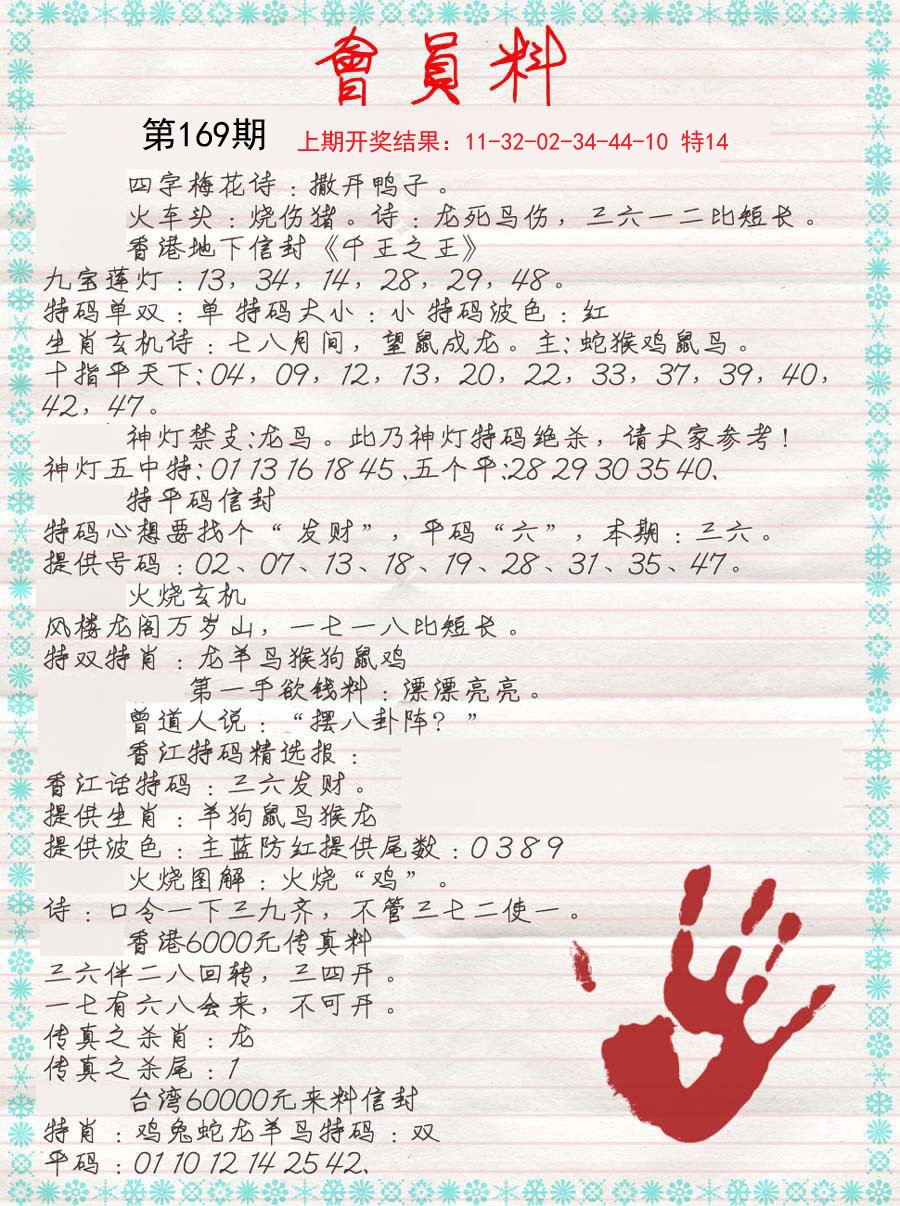 會員料
第169期 上期开奖结果：11-32-02-34-44-10 特14
四字梅花诗：撒开鸭子。
火车头：烧伤猪。诗：龙死马伤，三六一二比短长。
香港地下信封《千王之王》
九宝莲灯：13，34，14，28，29，48。
特码单双：单 特码大小：小 特码波色：红
生肖玄机诗：七八月间，望鼠成龙。主：蛇猴鸡鼠马。
十指平天下：04，09，12，13，20，22，33，37，39，40，
42，47。
神灯禁支:龙马。此乃神灯特码绝杀，请大家参考！
神灯五中特：01 13 16 18 45 、五个平:28 29 30 35 40、
特平码信封
特码心想要找个“发财”，平码“六”，本期：三六。
提供号码：02、07、13、18、19、28、31、35、47。
火烧玄机
风楼龙阁万岁山，一七一八比短长。
特双特肖：龙羊马猴狗鼠鸡
第一手欲钱料：漂漂亮亮。
曾道人说：“摆八卦阵？”
香江特码精选报：
香江话特码：三六发财。
提供生肖：羊狗鼠马猴龙
提供波色：主蓝防红提供尾数：0 3 8 9
火烧图解：火烧“鸡”。
诗：口令一下三九齐，不管三七二使一。
香港6000元传真料
三六伴二八回转，三四开。
一七有六八会来，不可开。
传真之杀肖：龙
传真之杀尾：1
台湾60000元来料信封
特肖：鸡兔蛇龙羊马特码：双
平码：01 10 12 14 25 42、